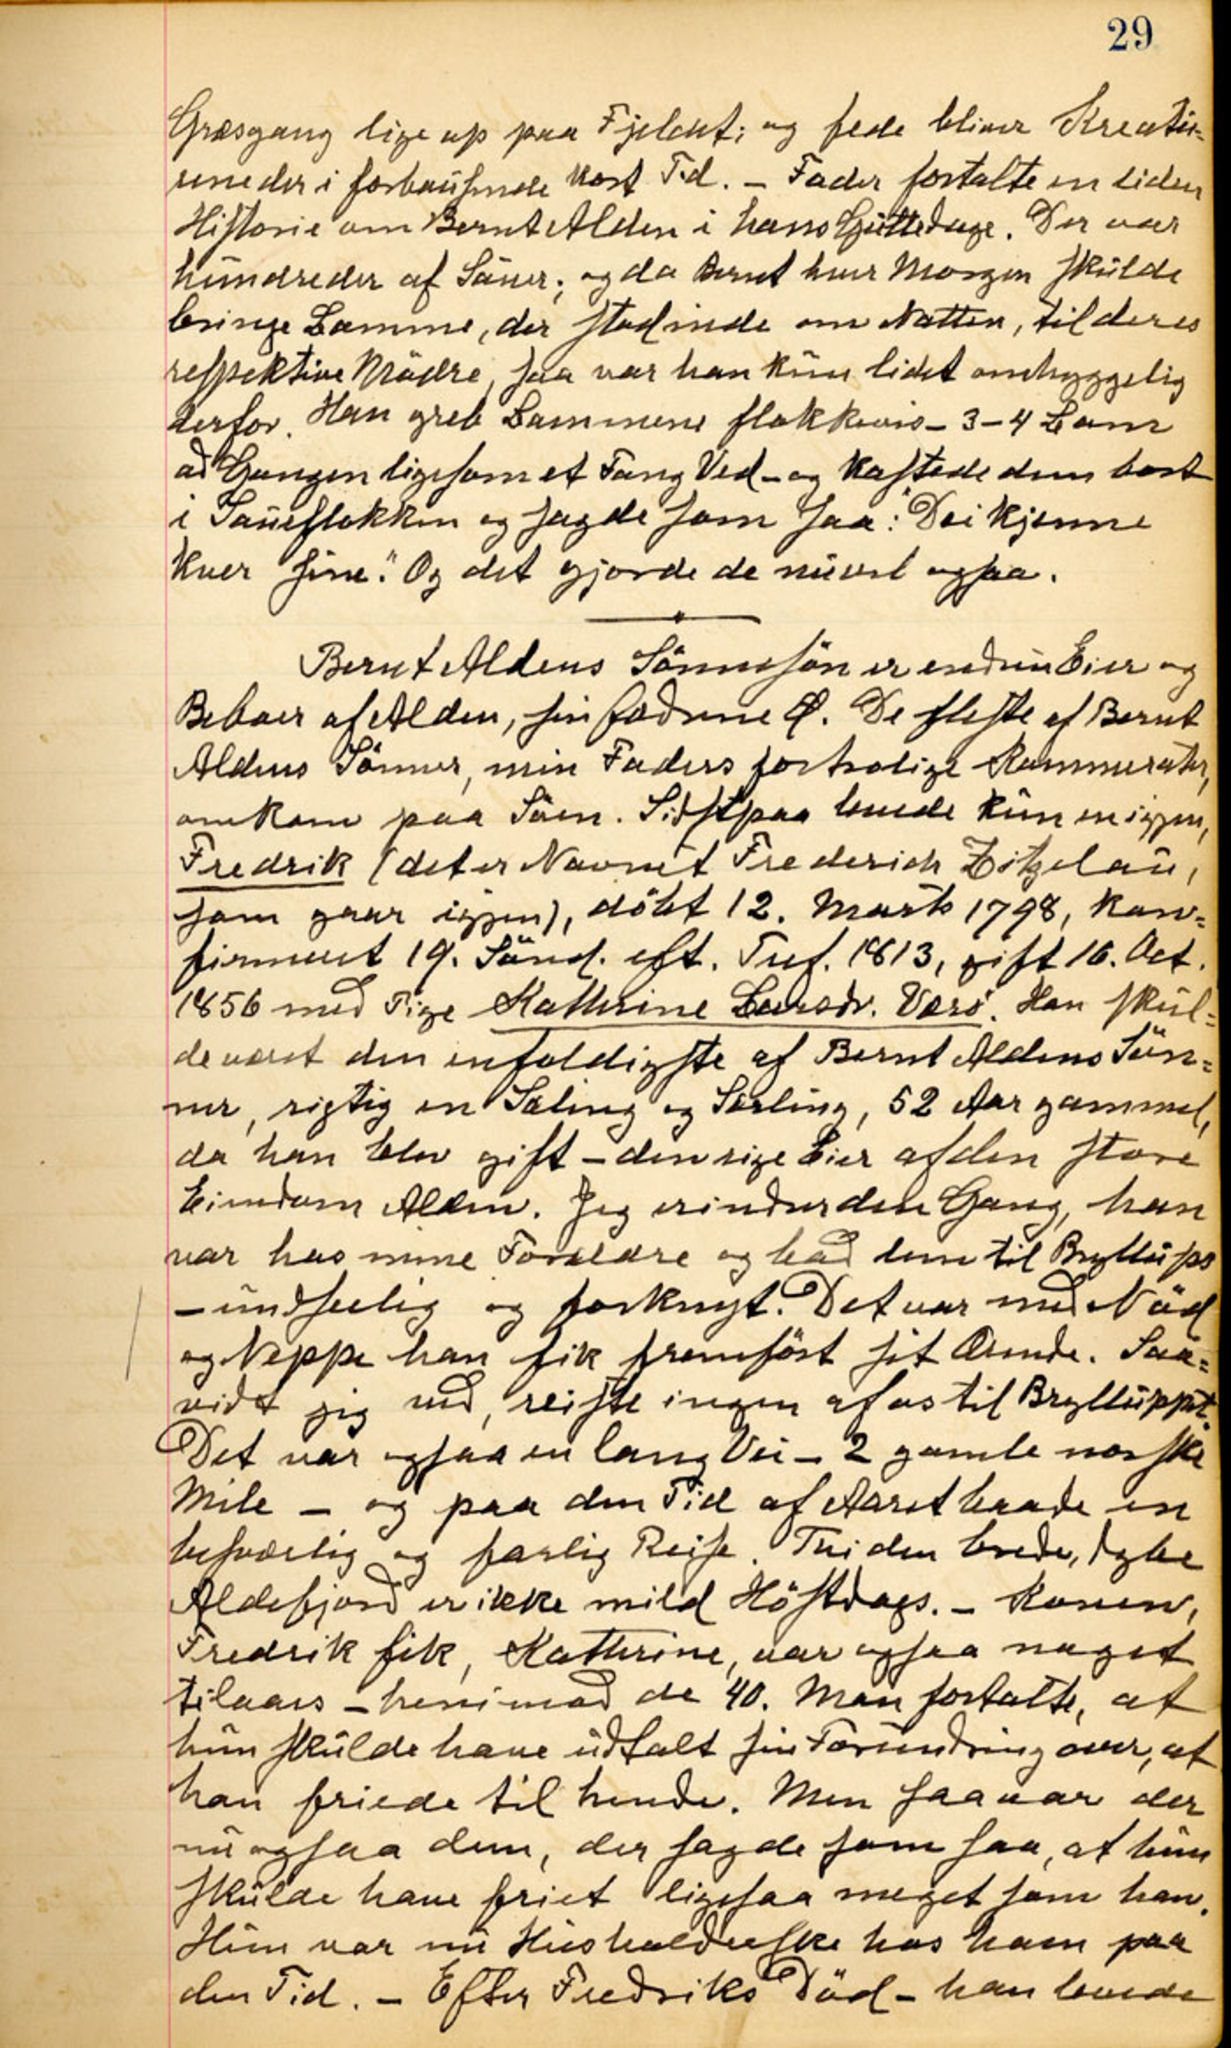 29
Græsgang lige op paa Fjeldet; og fede bliver Kreatu-
rene der i forbausende kort Tid. – Fader fortalte en liden
Historie om Bernt Alden i hans Guttedage. Der var
hundreder af Sauer; og da Bernt hver Morgen skulde
bringe Lamme, der stod inde om Natten, til deres
respektive Mödre, saa var han kun lidet omhyggelig
derfor. Han greb Lammene flokkevis – 3 – 4 Lam
ad Gangen ligesom et Fang Ved – og kastede dem bort
i Saueflokken og sagde som saa: "Dei kjenne
kver sine." Og det gjorde de nuvel ogsaa.
Bernt Aldens Sönnesön er endnu Eier og
Beboer af Alden, sin fædrene Ö. De fleste af Bernt
Aldens Sönner, min Faders fortrolige Kammerater,
omkom paa Söen. Sidstpaa levede kun en igjen,
Fredrik (det er Navnet Frederich Zitzelau,
som gaar igjen), döbt 12. Marts 1798, kon-
firmeret 19. Sönd. eft. Tref. 1813, gift 16. Oct.
1856 med Pige Kathrine Larsdr. Værö. Han skul-
de været den enfoldigste af Bernt Aldens Sön-
ner, rigtig en Sæling og Særling, 52 Aar gammel,
da han blev gift – den rige Eier af den store
Eiendom Alden. Jeg erindrer den Gang, han
var hos mine Forældre og bad dem til Bryllups
– undseelig og forknyt. Det var med Nöd
og Neppe han fik fremfört sit Ærende. Saa-
vidt jeg ved, reiste ingen af os til Brylluppet.
Det var ogsaa en lang Vei – 2 gamle norske
Mile – og paa den Tid af Aaret baade en
besværlig og farlig Reise. Thi den brede, dybe
Aldefjord er ikke mild Höstdags. – Konen,
Fredrik fik, Kathrine, var ogsaa noget
tilaars – henimod de 40. Man fortalte, at
hun skulde have udtalt sin Forundring over, at
han friede til hende. Men saa var der
nu ogsaa dem, der sagde som saa, at hun
skulde have friet ligesaa meget som han.
Hun var nu Husholderske hos ham paa
den Tid. – Efter Fredriks Död – han levede